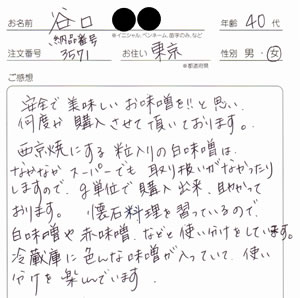 お名前 谷口
※イニシャル、ペンネーム、苗字のみ、など
年齢 40代
納品番号
注文番号 3571
お住い 東京
※都道府県
性別 男・女
ご感想
安全で美味しいお味噌を!!と思い、
何度か購入させて頂いております。
西京焼にする粒入りの白味噌は、
なかなかスーパーでも取り扱いがなかったり
しますので、g単位で購入出来、助かって
おります。 懐石料理を習っているので、
白味噌や赤味噌、などと使い分けをしています。
冷蔵庫に色んな味噌が入っていて、使い
分けを楽しんでいます。